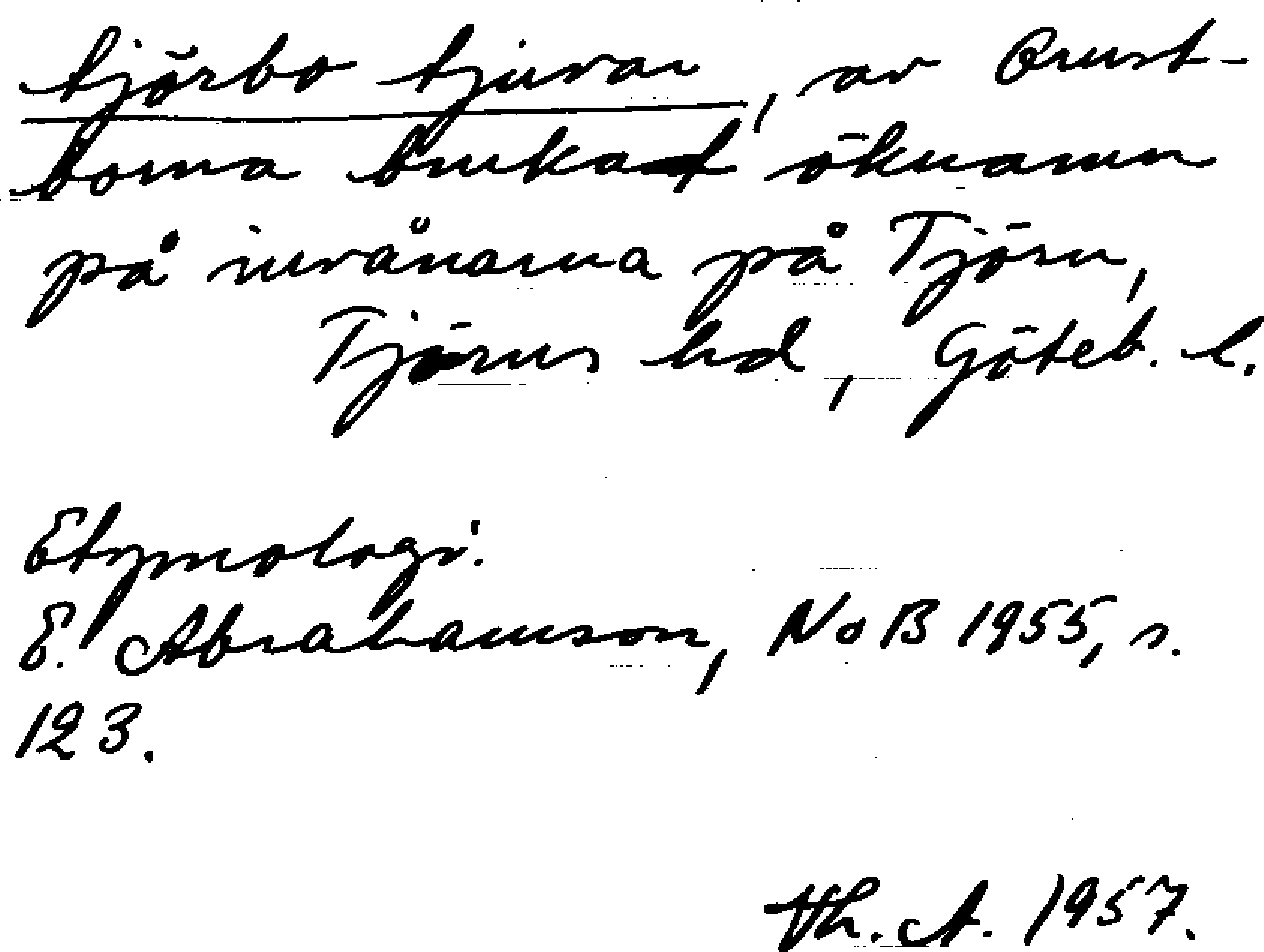 tjörbo tjuvar, av Orust-
borna brukat öknamn
på invånarna på Tjörn,
Tjörns hd, Göteb. l.
Etymologi:
E. Abrahamson, NoB 1955, s.
123.
Th. A. 1957.